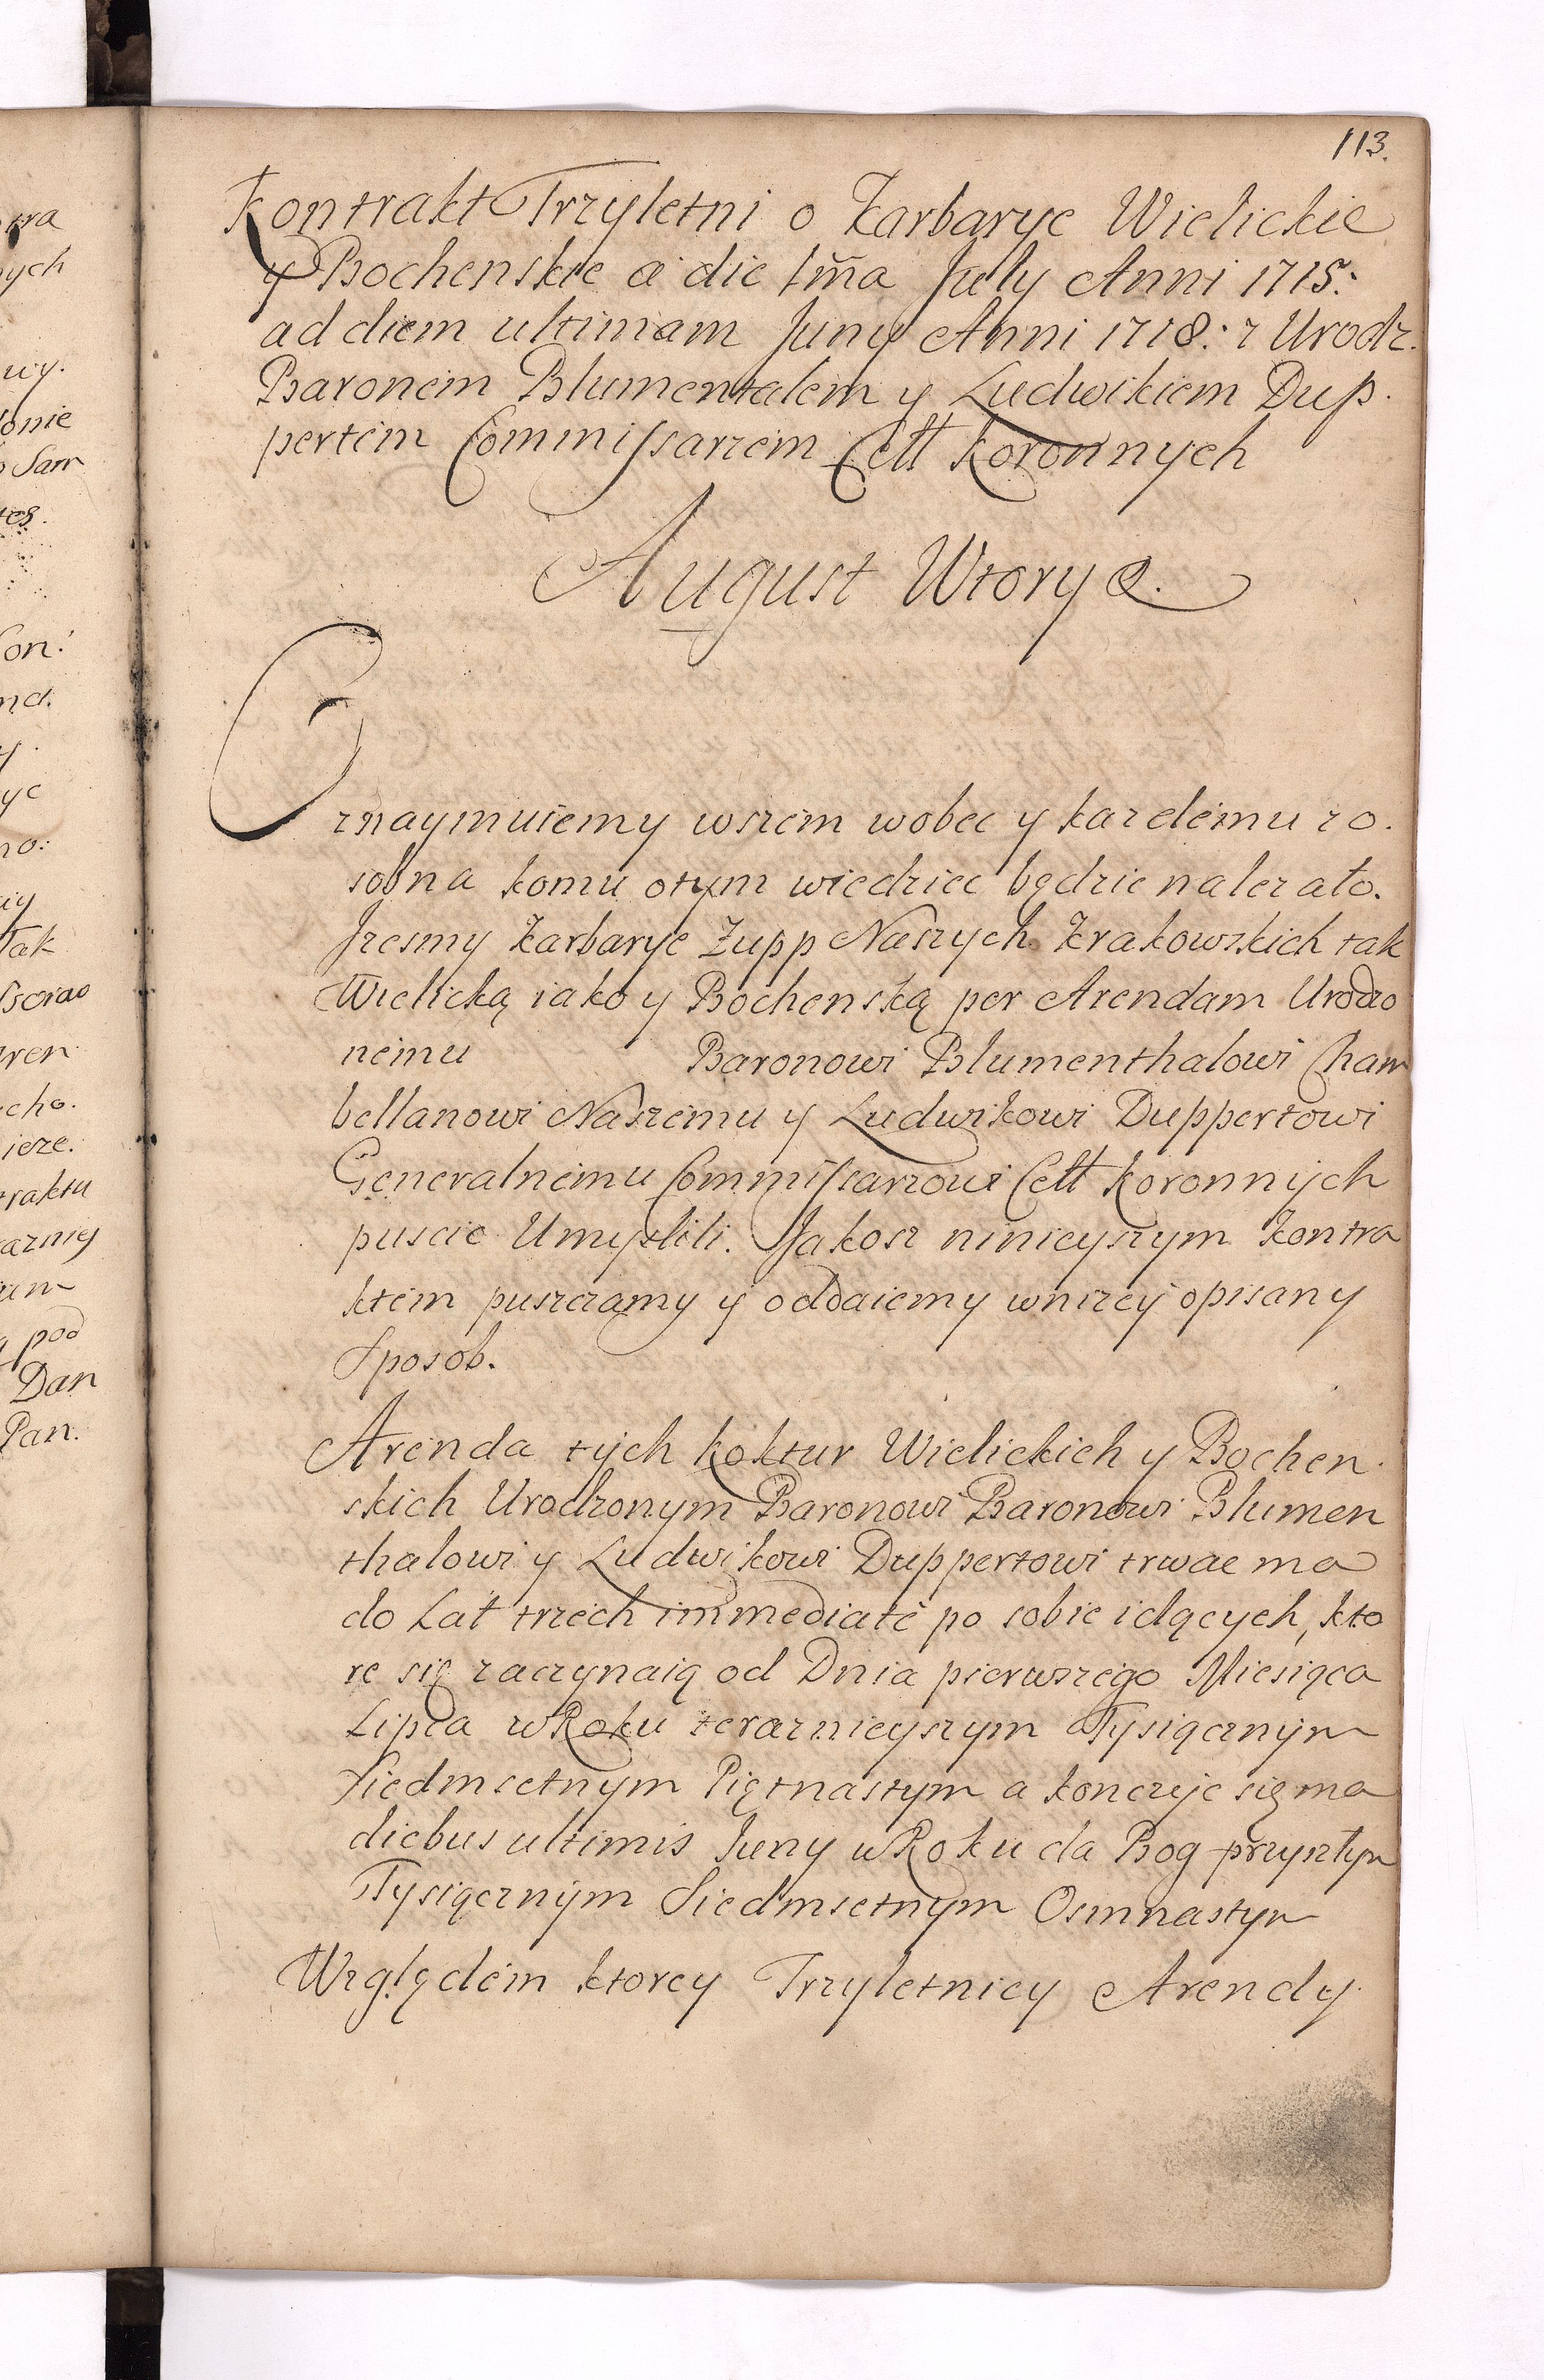 113.
Kontrakt Trzyletni o Karbarye Wielickie
y Bochenskie a die 1ma July Anni 1715:
ad diem ultimam Juny Anni 1718: z Urodz.
Baronem Blumentalem y Ludwikiem Dup.
pertem Commissarzem Cełł Koronnych
August Wtory
Oznaymuiemy wszem wobec y kazdemu zo.
sobna komu otym wiedziec będzie nalezało.
Jzesmy Karbarye Zupp Naszych Krakowskich tak
Wielicką iako y Bochenską per Arendam Urodzo
nemu Baronowi Blumenthalowi Cham
bellanowi Naszemu y Ludwikowi Duppertowi
Generalnemu Commissarzowi Cełł Koronnych
puscic Umyslili. Jakosz ninieyszym Kontra
ktem puszczamy y oddaiemy wnizey opisany
Sposob.
Arenda tych Koktur Wielickich y Bochen.
skich Urodzonym Baronowi Baronowi Blumen
thalowi y Ludwikowi Duppertowi trwac ma
do Lat trzech immediate po sobie idących, kto
re się zaczynaią od Dnia pierwszego Miesiąca
Lipca w Roku teraznieyszym Tysiącznym
Siedmsetnym Piętnastym a konczyc się ma
diebus ultimis Juny w Roku da Bog przyszłym
Tysiącznym Siedmsetnym Osmnastym
Względem ktorey Trzyletniey Arendy.